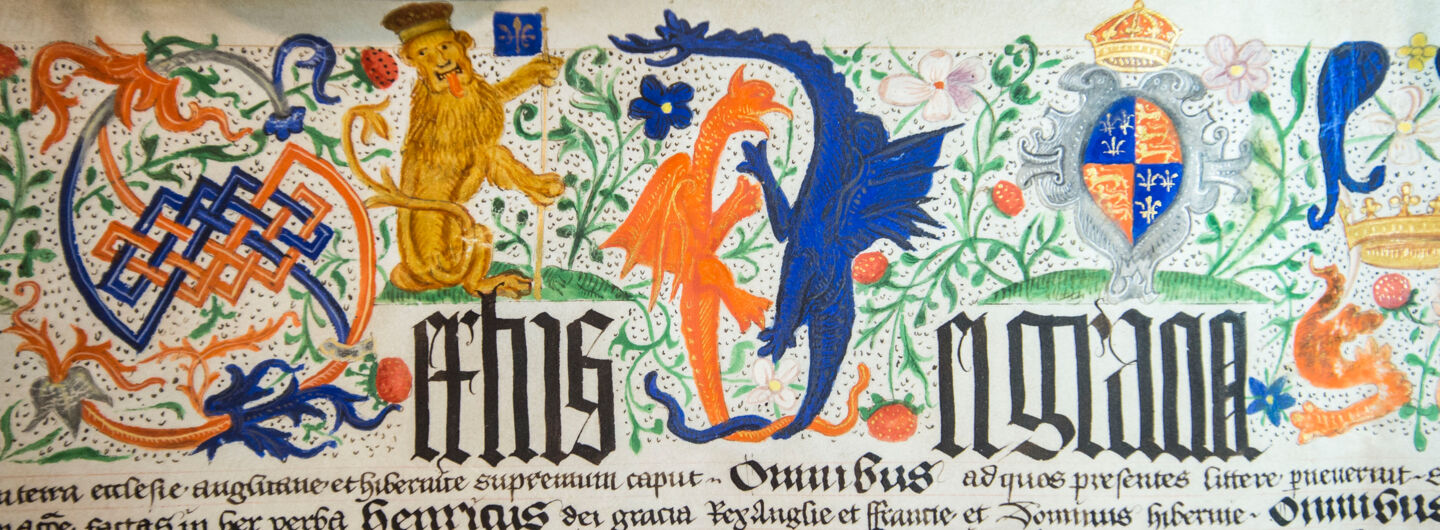 Sextus Dei gracia
in terra ecclesie anglicane et hibernice supremum caput Omnibus ad quos presentes littere puenerint
factas in hec verba Henricus dei gracia Rex Anglie et ffrancie et Dominus hibernie Omnibus